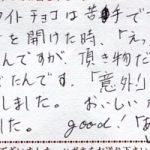 イトチョコは苦手で
を開けた時、「えっ
んですが、頂き物だ
たんです。「意外
しました。 おいしい
した。 good!「あ